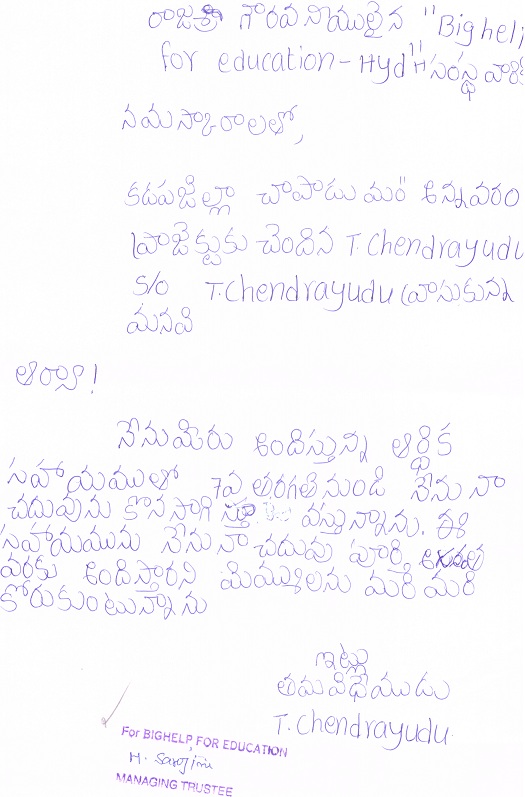 రాజశ్రీ గౌరవనీయులైన "Bighel
for education-Hyd" సంస్థ వారికి
నమస్కారాలతో,
కడపజిల్లా చాపాడు మం" అన్నవరం
ప్రాజెక్టుకు చెందిన T. Chendrayudu
S/o T.Chendrayudu వ్రాసుకున్న
మనవి
ఆర్యా!
నేనుమీరు అందిస్తున్న ఆర్థిక
సహాయముతో 7వ తరగతి నుండి నేను నా
చదువును కొనసాగిస్తూ వస్తున్నాను. ఈ
సహాయమును నేను నా చదువు పూర్తి
వరకు అందిస్తారని మిమ్ములను మరీ మరీ
కోరుకుంటున్నాను
ఇట్లు
తమవిధేయుడు
T. Chendrayudu.
For BIGHELP FOR EDUCATION
H. Sarojini
MANAGING TRUSTEE